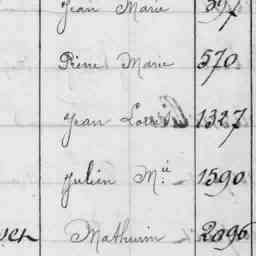 Jean Marie
Pierre Marie 570
Jean 1327
Julien M.ie 1590
Mathurin 2096